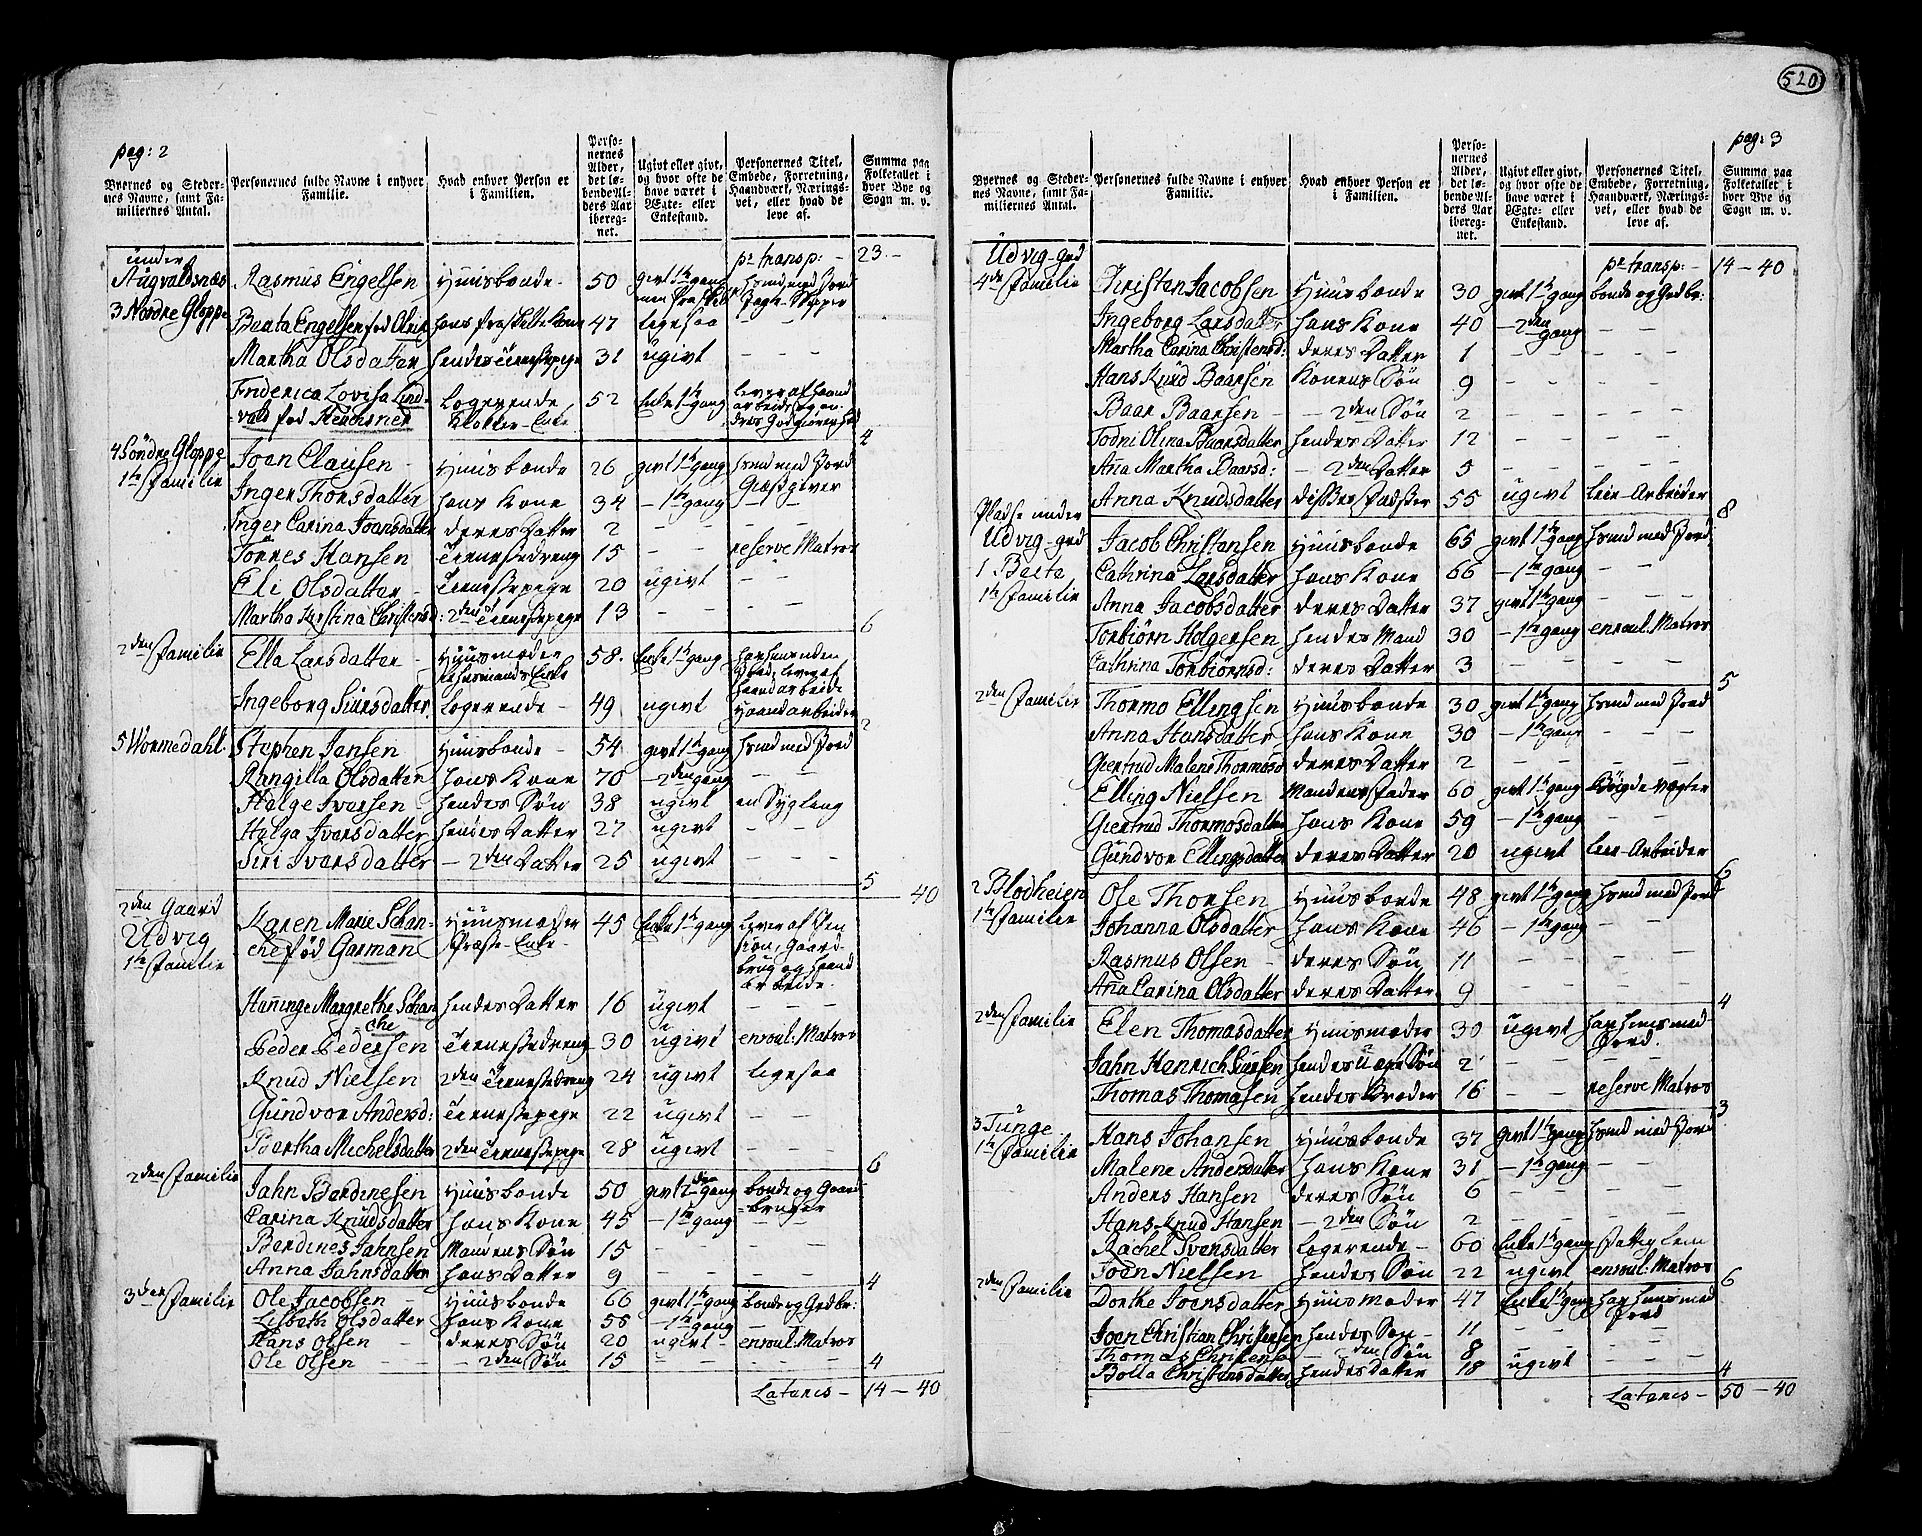 pag: 2
Byernes og Stedernes Navne, samt Familiernes Antal. | Personernes fulde Navne i enhver Familie. | Hvad enhver Person er i Familien. | Personernes Alder, det løbende Alders Aar iberegnet. | Ugivt eller givt, og hvor ofte de have været i Ægte- eller Enkestand. | Personernes Titel, Embede, Forretning, Haandværk, Næringsvei, eller hvad de leve af. | Summa paa Folketallet i hver Bye og Sogn m. v.
pr transp: - 23. -
under Augvaldsnæs 3 Nordre Gloppe Rasmus Engelsen Huusbonde - 50 givt 1te gang
Berta Engelsen fød 47 ligesaa - -
Martha Olsdatter 31 ugivt - - -
Friderica Lovisa Lindvald fød Logerende 52 Enke 1te gang lever af haand arbeide
4
4 Söndre Gloppe 1te Familie Joen Clausen - Huusbonde 26 givt 1te gang Huusmd med Jord
Inger Thorsdatter hans Kone 34 - 1te gang Giæstgiver
Inger Carina Joansdatter deres Datter 2 - - -
Tönnes Hansen tienestedreng 15 - - reserve Matros
Eli Olsdatter - tienestepige 20 ugivt - -
Martha Kirstina Christensd: 2den tienestepige 13 - - -
6
2den Familie Ella Larsdatter - Huusmoder 58. Enke 1te gang
Ingeborg Siursdatter. Logerende - 49 ugivt Haandarbeider
2
5 Wormedahl. Stephen Jansen Huusbonde - 54 givt 1te gang Huusmd med Jord
Rangilla Olsdatter hans Kone 70 - 2den gang - -
Helge Ivarsen hendes Søn 38 ugivt en Sygling
Helga Ivarsdatter hendes Datter 27 ugivt - -
Siri Ivarsdatter - 2den Datter 25 ugivt - - -
5 - 40
2den Gaard Udvig 1te Familie Karen Marie Schanche fød Garman Huusmoder Præste-Enke - 45 Enke 1te gang Lever af Pension, Gaardbrug og haand arbeide.
Hanninge Margrethe Schanche hendes Datter 16 ugivt - -
Peder Pedersen tienestedreng 30 ugivt enroul: Matros
Knud Nielsen 2den tienestedreng 24 ugivt ligesaa
Gundvor Andersd: tienestepige 22 ugivt - -
Bertha Michelsdatter 2den tienestepige 28 ugivt - -
6
2den Familie Jahn Bardinesen Huusbonde 50 givt 2den gang bonde og Gaardbruger
Carina Knudsdatter hans Kone 45 - 1te gang - -
Bardines Jahnsen Mandens Søn 15 - - -
Anna Jahnsdatter hans Datter 9 - - -
4
3die Familie Ole Jacobsen - Huusbonde 66 givt 1te gang bonde og Grdbr:
Lisbeth Olsdatter hans Kone 56 - 1te gang - -
Hans Olsen deres Søn 20 ugivt - enroul: Matros
Ole Olsen - - - 2den Søn 15 - - -
4
Lateris - 14 - 40
520
pag: 3
Byernes og Stedernes Navne, samt Familiernes Antal. | Personernes fulde Navne i enhver Familie. | Hvad enhver Person er i Familien. | Personernes Alder, det løbende Alders Aar iberegnet. | Ugivt eller givt, og hvor ofte de have været i Ægte- eller Enkestand. | Personernes Titel, Embede, Forretning, Haandværk, Næringsvei, eller hvad de leve af. | Summa paa Folketallet i hver Bye og Sogn m. v.
Udvig - grd pr transp: - 14 - 40
4de Familie Christen Jacobsen Huusbonde 30 givt 1te gang bonde og Grdbr:
Ingeborg Larsdatter hans Kone 40 - 2den gang - -
Martha Carina Christensd: deres Datter 1 - - -
Hans Knud Baarsen Konens Søn 9 - - -
Baar Baarsen - - 2den Søn 2 - - -
Todni Olina Baarsdatter hendes Datter 12 - - -
Anna Martha Baarsd: - 2den Datter 5 - - -
Anna Knudsdatter 55 ugivt leie-Arbeider
8
Pladse under Udvig-grd 1 1te Familie Jacob Christensen Huusbonde 65 givt 1te gang Huusmd med Jord
Cathrina Larsdatter hans Kone 66 - 1te gang - -
Anna Jacobsdatter deres Datter 37 givt 1te gang - - -
Torbiörn Holgersen hendes Mand 30 - 1te gang enroul: Matros
Cathrina Torbiörnsd: deres Datter 3 - - -
5
2den Familie Thormo Ellingsen Huusbonde 30 givt 1te gang Huusmd med Jord
Anna Hansdatter hans Kone 30 - 1te gang - -
Giertrud Malene Thormosd deres Datter 2 - - -
Elling Nielsen Mandens Fader 60 givt 1te gang Bögdevægter
Giertrud Thormosdatter hans Kone 59 - 1te gang - -
Gundvor Ellingsdatter deres Datter 20 ugivt leie-Arbeider
6
2 Blodheien 1te Familie Ole Thorsen Huusbonde 48 givt 1te gang Huusmd med Jord
Johanna Olsdatter hans Kone 46 - 1te gang - -
Rasmus Olsen - deres Søn 11 - - -
Anna Carina Olsdatter deres Datter 9 - - -
4
2den Familie Elen Thomasdatter Huusmoder 30 ugivt har huus med Jord.
Jahn Henrich hendes uægte Søn 2 - - -
Thomas Thomasen hendes Broder 16 - - reserve Matros
3
3 Tunge 1te Familie Hans Johansen Huusbonde 37 givt 1te gang Huusmd med Jord
Malene Andersdatter hans Kone 31 - 1te gang - -
Anders Hansen deres Søn 6 - - -
Hans Knud Hansen - 2den Søn 2 - - -
Rachel Svensdatter Logerende - 60 Enke 1te gang Fattig lem
Joen Nielsen hendes Søn 22 ugivt enroul: Matros
6
2den Familie Dorthe Joensdatter Huusmoder 47 Enke 1te gang har huus med Jord
Joen Christian Christensen hendes Søn - 11 - - -
Thomas Christensen - 2den Søn 8 - - -
Bolla Christensdatter hendes Datter 18 ugivt - - -
4
Lateris - 50 - 40